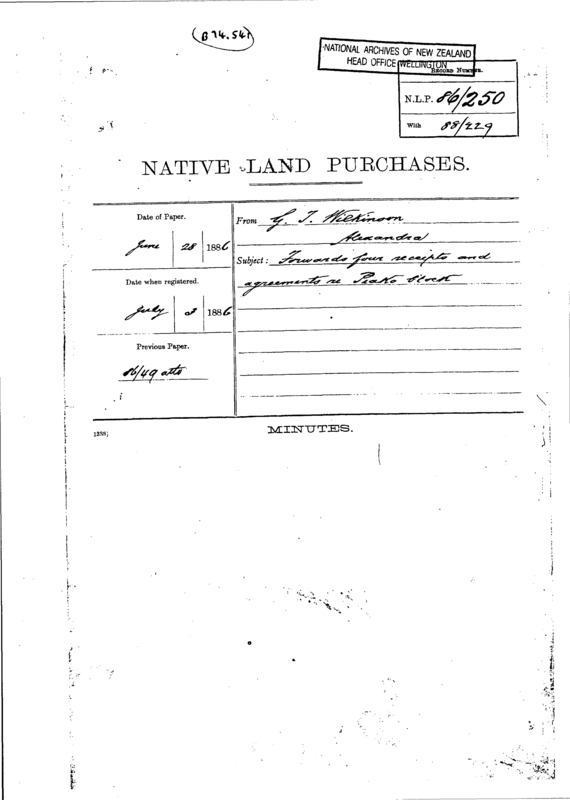 (B 74.54)
NATIONAL ARCHIVES OF NEW ZEALAND
HEAD OFFICE WELLINGTON
RECORD NUMBER.
N.L.P. 86/250
With 88/229
NATIVE LAND PURCHASES.
Date of Paper.
June 28 1886
Date when registered.
July 3 1886
Previous Paper.
86/49 atts
From G. T. Wilkinson
Alexandra
Subject: Forwards four receipts and
agreements re Piako block
1238;
MINUTES.